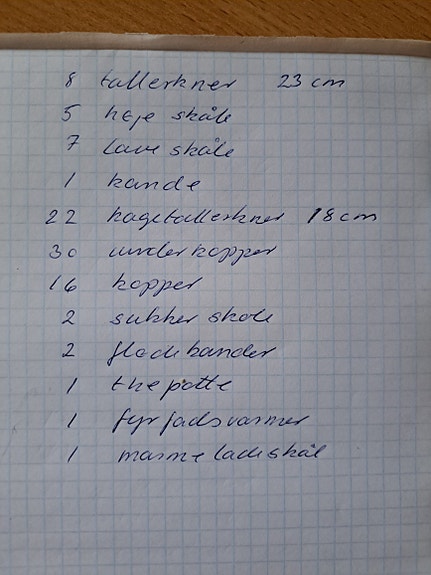 8 tallerkner 23 cm
5 høje skåle
7 lave skåle
1 kande
22 kagetallerkner 18 cm
30 underkopper
16 kopper
2 sukker skåle
2 flødekander
1 thepotte
1 fyrfadsvarmer
1 marmeladeskål